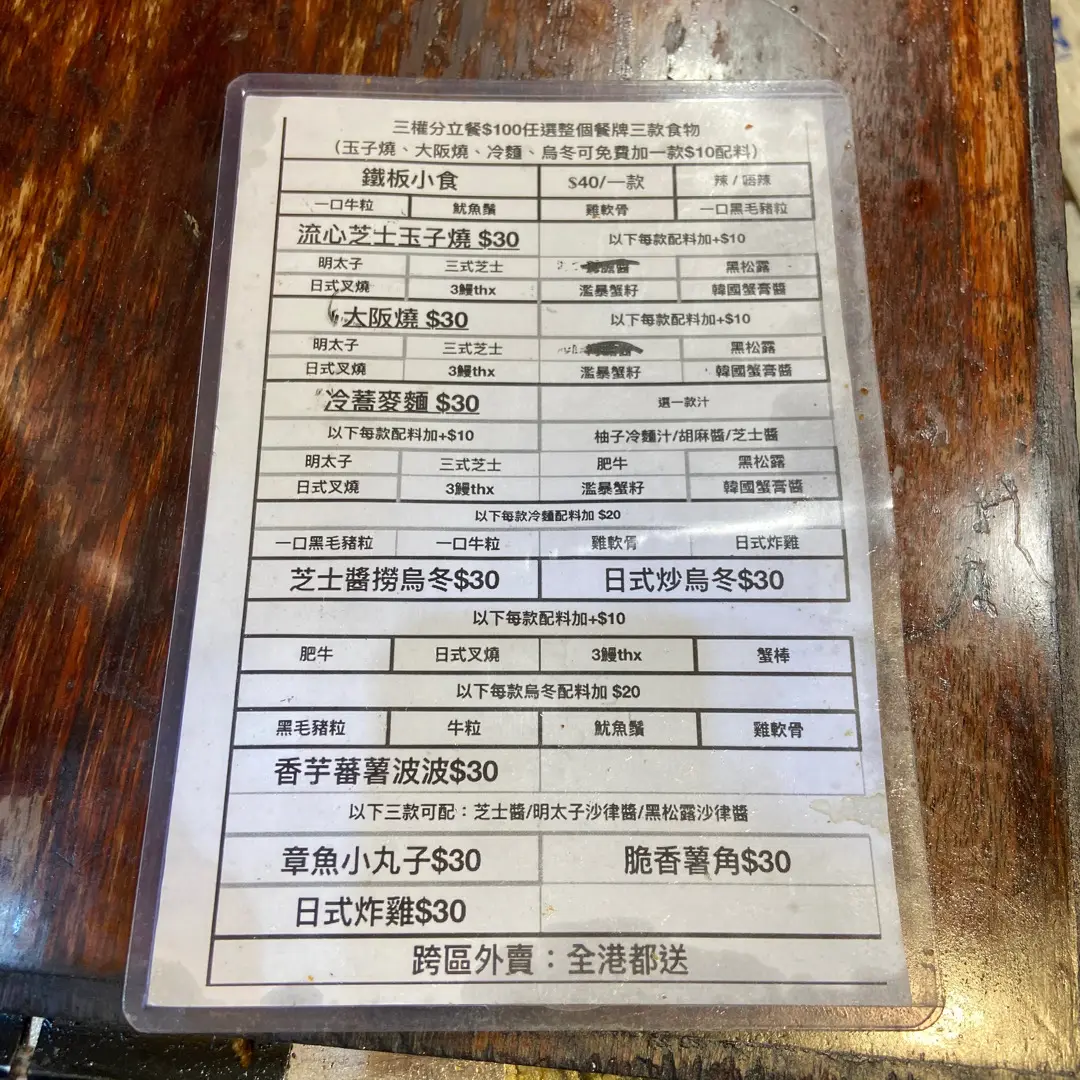 三權分立餐$100任選整個餐牌三款食物
(玉子燒、大阪燒、冷麵、烏冬可免費加一款$10配料)
鐵板小食 $40/一款 辣/唔辣
一口牛粒 魷魚鬚 雞軟骨 一口黑毛豬粒
流心芝士玉子燒 $30 以下每款配料加+$10
明太子 三式芝士 黑松露
日式叉燒 3鰻thx 濫暴蟹籽 韓國蟹膏醬
大阪燒 $30 以下每款配料加+$10
明太子 三式芝士 黑松露
日式叉燒 3鰻thx 濫暴蟹籽 韓國蟹膏醬
冷蕎麥麵 $30 選一款汁
以下每款配料加+$10 柚子冷麵汁/胡麻醬/芝士醬
明太子 三式芝士 肥牛 黑松露
日式叉燒 3鰻thx 濫暴蟹籽 韓國蟹膏醬
以下每款冷麵配料加 $20
一口黑毛豬粒 一口牛粒 雞軟骨 日式炸雞
芝士醬撈烏冬$30 日式炒烏冬$30
以下每款配料加+$10
肥牛 日式叉燒 3鰻thx 蟹棒
以下每款烏冬配料加 $20
黑毛豬粒 牛粒 魷魚鬚 雞軟骨
香芋蕃薯波波$30
以下三款可配：芝士醬/明太子沙律醬/黑松露沙律醬
章魚小丸子$30 脆香薯角$30
日式炸雞$30
跨區外賣：全港都送